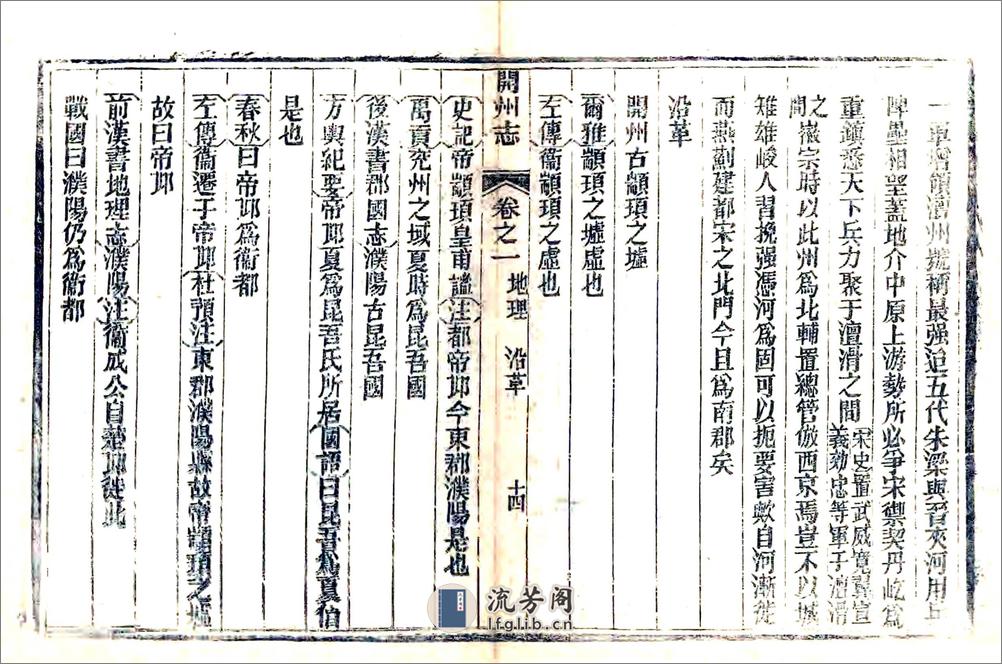 一軍增領澶州號稱最强迨五代朱梁與晉夾河用兵
壘相望蓋地介中原上游勢所必爭宋禦契丹屹爲
重鎮悉天下兵力聚于澶滑之間宋史置武威寬翼宣
義効忠等軍于澶滑
之間徽宗時以此州爲北輔置總管倣西京焉豈不以城
雉雄峻人習挽强憑河爲固可以扼要害歟自河漸徙
而燕薊建都宋之北門今且爲南郡矣
沿革
開州古顓頊之墟
爾雅顓頊之墟虛也
左傳衞顓頊之虛也
開州志 卷之一 地理 沿革 十四
史記帝顓頊皇甫謐注都帝邱今東郡濮陽是也
禹貢兖州之域夏時爲昆吾國
後漢書郡國志濮陽古昆吾國
方輿紀要帝邱夏爲昆吾氏所居國語曰昆吾爲夏伯
是也
春秋曰帝邱爲衞都
左傳衞遷于帝邱杜預注東郡濮陽縣故帝顓頊之墟
故曰帝邱
前漢書地理志濮陽注衞成公自楚邱徙此
戰國曰濮陽仍爲衞都
流芳阁
lfglib.cn